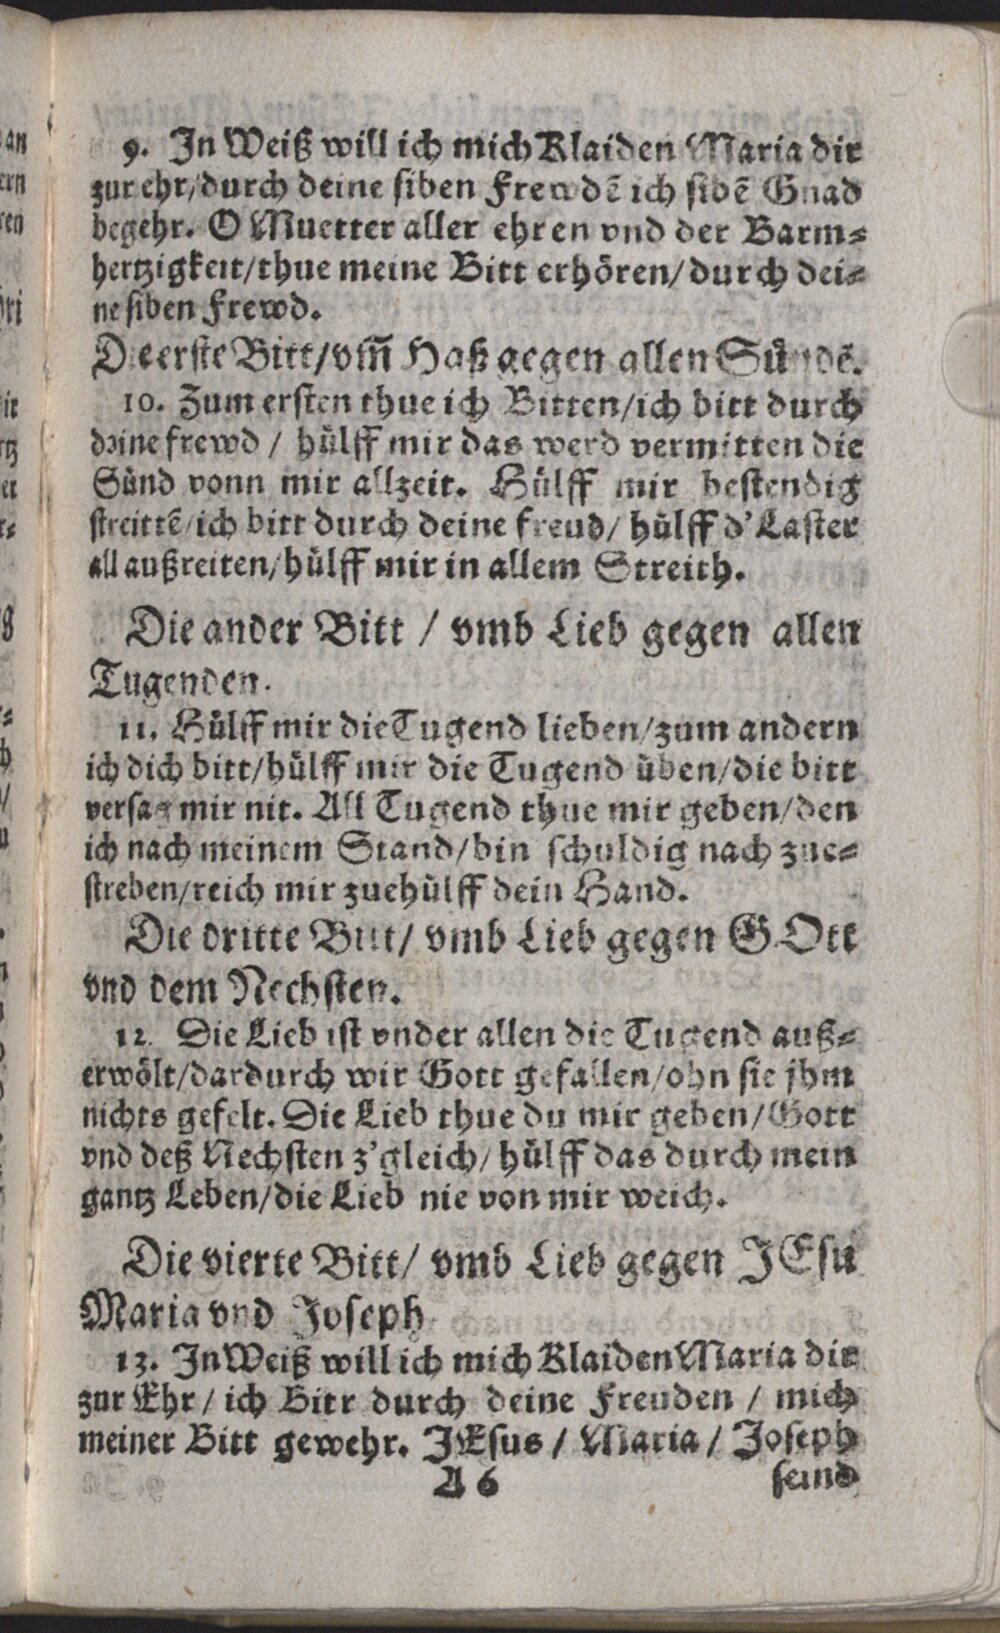 9. In Weiß will ich mich Klaiden Maria dir
zur ehr/durch deine siben Frewdẽ ich sibẽ Gnad
begehr. O Muetter aller ehren vnd der Barm-
hertzigkeit/thue meine Bitt erhören/durch dei-
ne siben Frewd.
Die erste Bitt/vm̃ Haß gegen allen Sündẽ.
10. Zum ersten thue ich Bitten/ich bitt durch
deine frewd / hülff mir das werd vermitten die
Sünd vonn mir allzeit. Hülff mir bestendig
streittẽ/ich bitt durch deine freud/ hülff d'Laster
all außreiten/hülff mir in allem Streith.
Die ander Bitt / vmb Lieb gegen allen
Tugenden.
11. Hülff mir die Tugend lieben/zum andern
ich dich bitt/hülff mir die Tugend üben/die bitt
versag mir nit. All Tugend thue mir geben/den
ich nach meinem Stand/bin schuldig nach zue-
streben/reich mir zuehülff dein Hand.
Die dritte Bitt/ vmb Lieb gegen GOtt
vnd dem Nechsten.
12. Die Lieb ist vnder allen die Tugend auß-
erwölt/dardurch wir Gott gefallen/ohn sie jhm
nichts gefelt. Die Lieb thue du mir geben/Gott
vnd deß Nechsten z'gleich/hülff das durch mein
gantz Leben/die Lieb nie von mir weich.
Die vierte Bitt/ vmb Lieb gegen JEsu
Maria vnd Joseph
13. In Weiß will ich mich Klaiden Maria dir
zur Ehr / ich Bitt durch deine Freuden / mich
meiner Bitt gewehr. JEsus / Maria / Joseph
A 6 seind